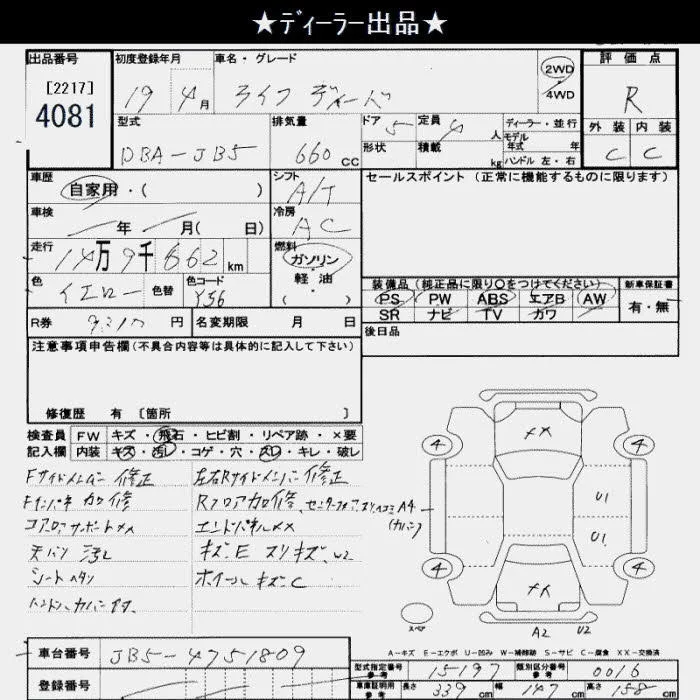 ★ディーラー出品★
出品番号 初度登録年月 車名・グレード 評価点
[2217]
4081
19 4月 ライフ ディーバ 2WD R
4WD
型式 排気量 ドア 5 定員 4人 ディーラー・並行 外装 内装
モデル
年式 年
DBA-JB5 660cc 形状 積載 kg ハンドル 左・右 C C
車歴 シフト セールスポイント(正常に機能するものに限ります)
自家用・( ) A/T
車検 冷房
年 月( 日) AC
走行 燃料
14万9千662km ガソリン
軽油
( )
色 色替 色コード 装備品(純正品に限り○をつけてください) 新車保証書
イエロー Y56 PS PW ABS エアB AW 有・無
SR ナビ TV カワ
R券 円 名変期限 月 日 後日品
注意事項申告欄(不具合内容等は具体的に記入して下さい)
修復歴 有 [箇所 ]
検査員 FW キズ・飛石・ヒビ割・リペア跡・×要
記入欄 内装 キズ・汚レ・コゲ・穴・スレ・キレ・破レ
Fサイドメンバー 修正 左右Rサイドメンバー 修正
Fインパネ 加修 Rフロア加修、
コアロアサポート×× エンドパネル××
天バリ 汚レ キズE スリキズ、U2
シート ヘタリ ホイール キズC
A4
(カバン)
4 4
4 4
U1
U1
スペア
A2 U2
A-キズ E-エクボ U-凹み W-補修跡 S-サビ C-腐食 XX-交換済
車台番号 JB5-4751809
型式指定番号 参考 15197 類別区分番号 参考 0016
登録番号
車庫証明用 参考 長さ 339cm 幅 147cm 高さ 158cm